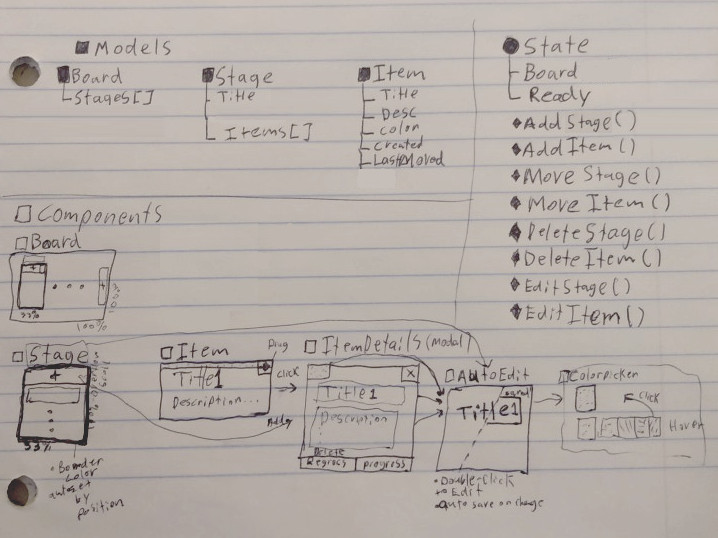 Models
Board
Stages[]
Stage
Title
Items[]
Item
Title
Desc
Color
Created
LastMoved
State
Board
Ready
AddStage()
AddItem()
MoveStage()
MoveItem()
DeleteStage()
DeleteItem()
EditStage()
EditItem()
Components
Board
+
+
33%
100%
100%
Stage
+
33%
Boarder
color
autoset
by
position
Item
Drag
Title1
Description...
click
Adding
ItemDetails (modal)
X
Title1
Description
Delete
Regress
progress
AutoEdit
saved
Title1
Double-Click
to Edit
Auto save on change
Colorpicker
Click
Hover